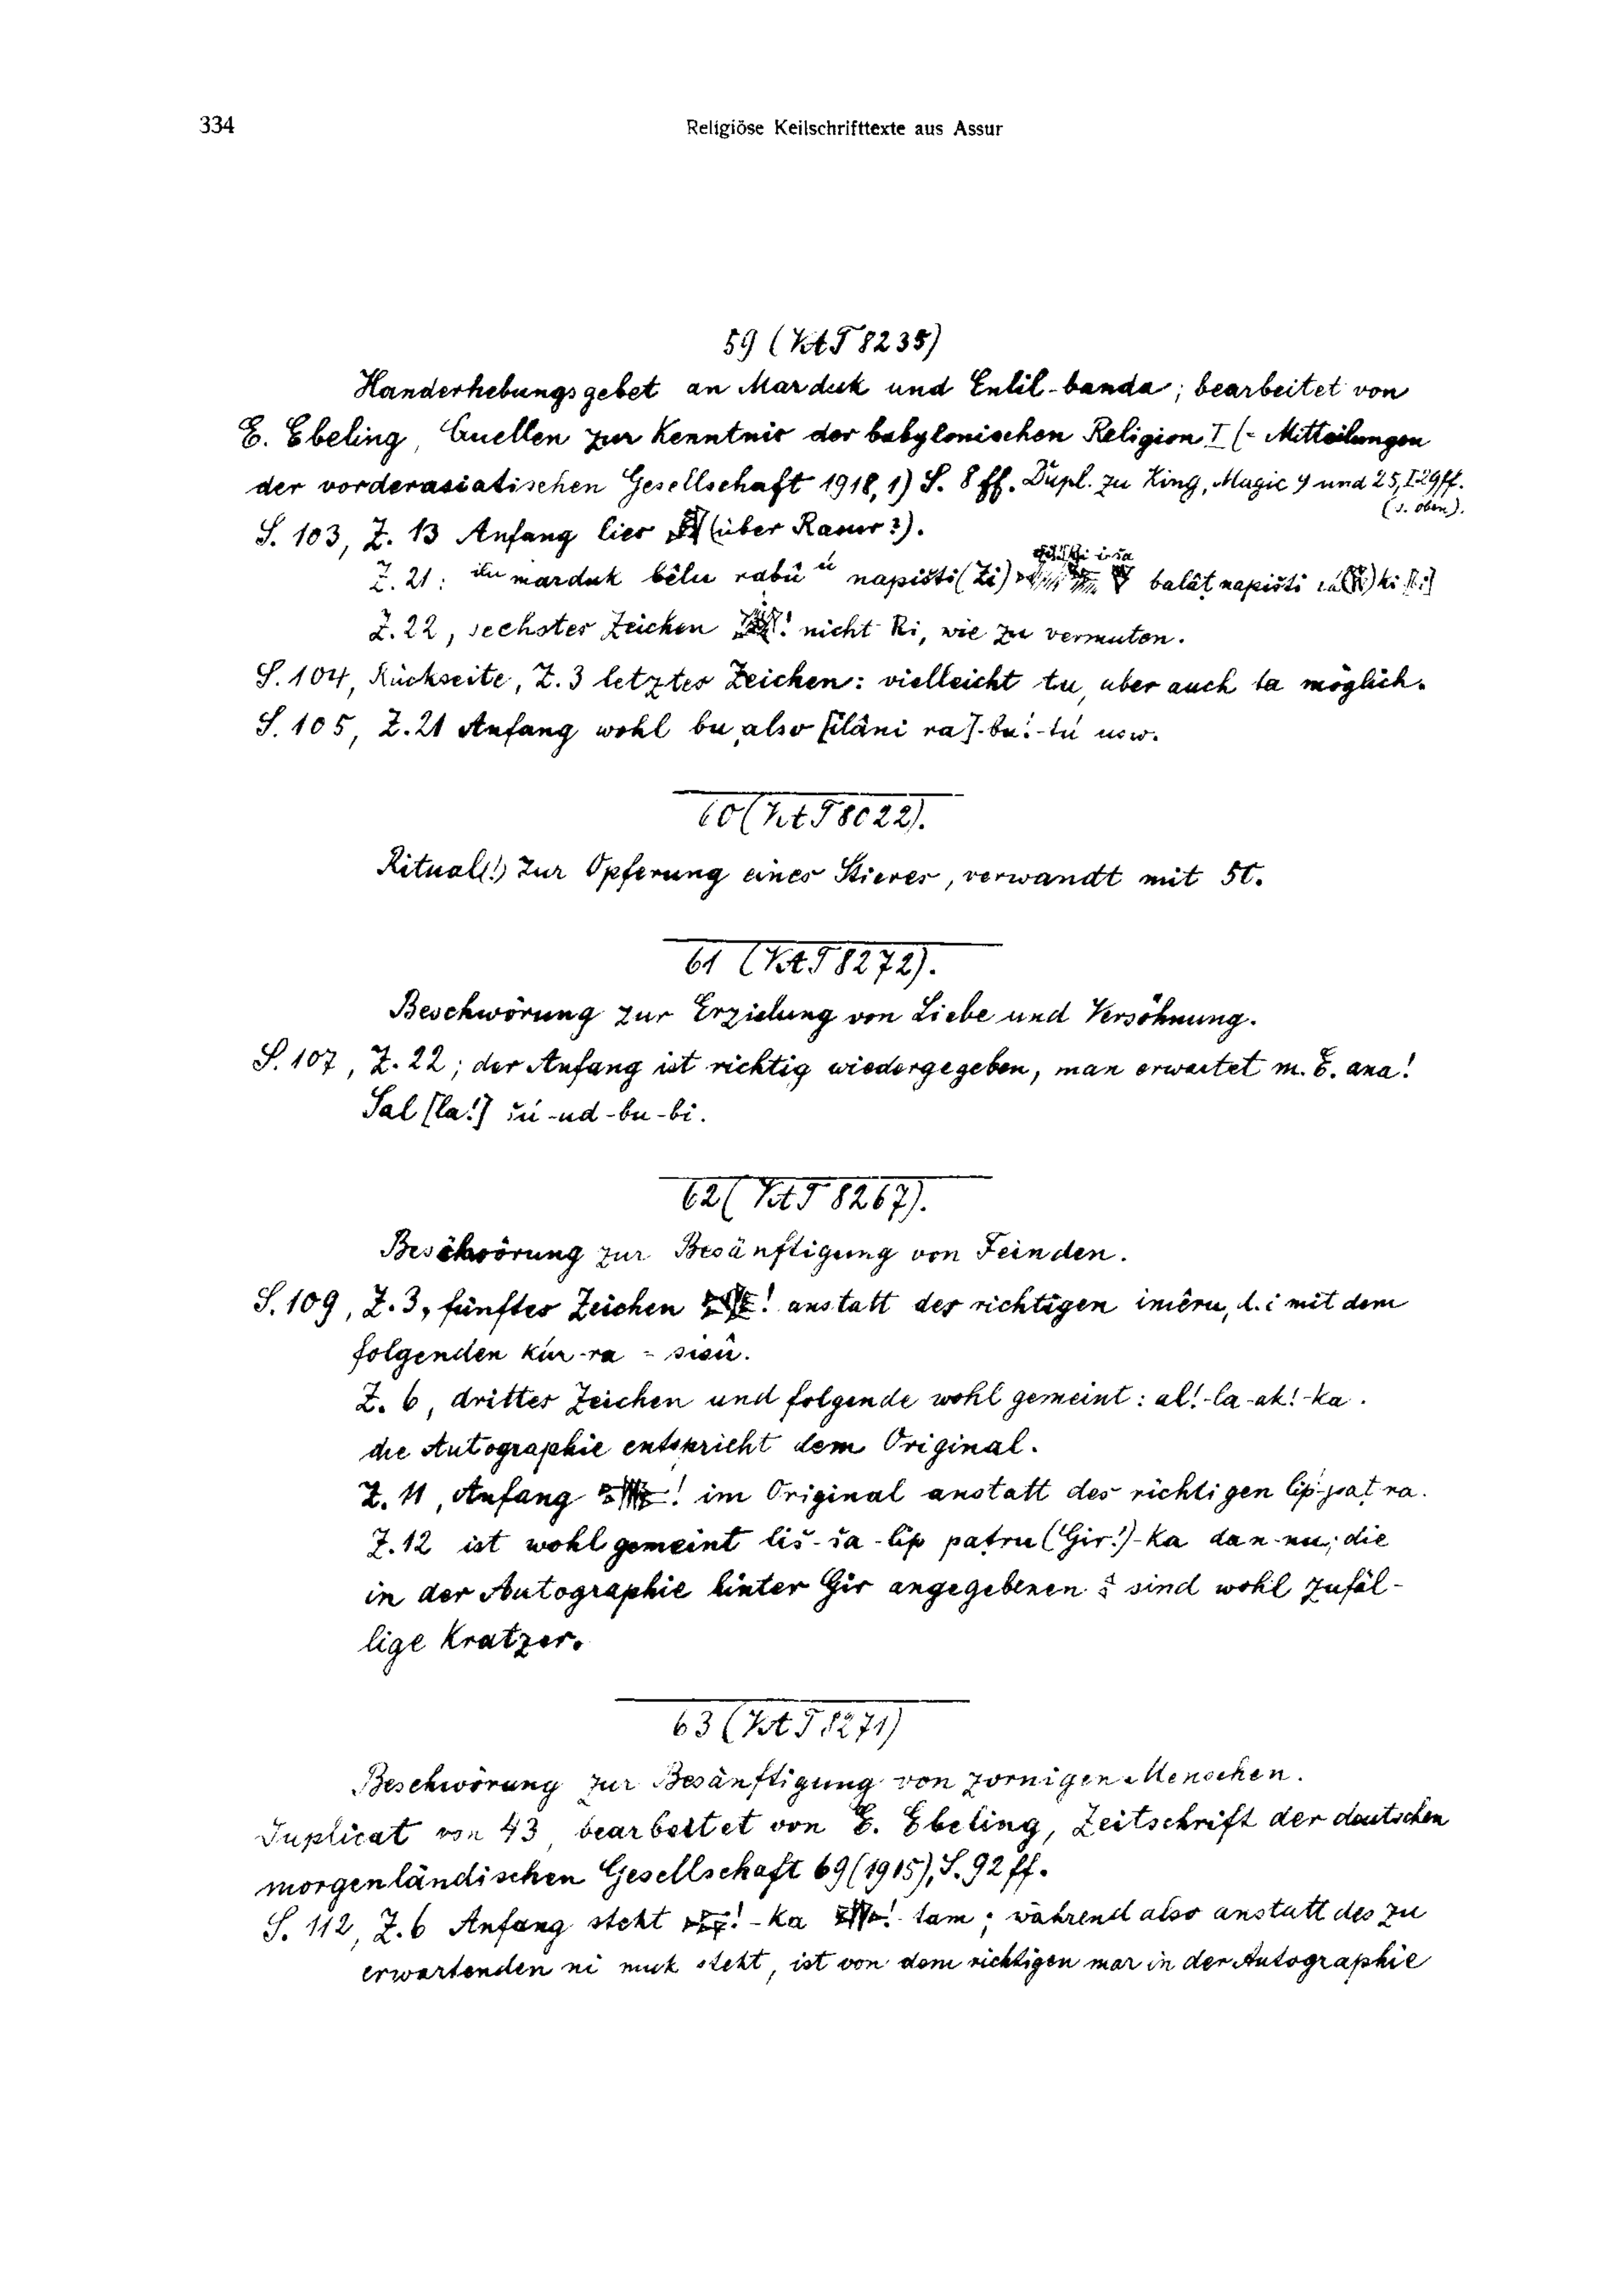 334
Religiöse Keilschrifttexte aus Assur
59 (VAT 8235)
Handerhebungsgebet an Marduk und Enlil-banda; bearbeitet von
E. Ebeling, Quellen zur Kenntnis der babylonischen Religion I (= Mitteilungen
der vorderasiatischen Gesellschaft 1918,1) S. 8 ff. Dupl. zu King, Magic 9 und 25, I 29ff.
(s. oben).
S. 103, Z. 13 Anfang lies (über Rasur?).
Z. 21: ilu marduk bêlu rabû ú napišti (Zi) balâṭ napišti
Z. 22, sechstes Zeichen ! nicht Ki, wie zu vermuten.
S. 104, Rückseite, Z. 3 letztes Zeichen: vielleicht tu, aber auch ta möglich.
S. 105, Z. 21 Anfang wohl bu, also [ilâni ra]-bu!-tú usw.
60 (VAT 8022).
Ritual(!) zur Opferung eines Stieres, verwandt mit 50.
61 (VAT 8272).
Beschwörung zur Erzielung von Liebe und Versöhnung.
S. 107, Z. 22; der Anfang ist richtig wiedergegeben, man erwartet m. E. ana!
Sal [la!] šú-ud-bu-bi.
62 (VAT 8267).
Beschwörung zur Besänftigung von Feinden.
S. 109, Z. 3, fünftes Zeichen ! anstatt des richtigen imêru, d. i mit dem
folgenden kúr-ra = sisû.
Z. 6, drittes Zeichen und folgende wohl gemeint: al!-la-ak!-ka.
die Autographie entspricht dem Original.
Z. 11, Anfang ! im Original anstatt des richtigen lip-paṭ-ra.
Z. 12 ist wohl gemeint liš-ša-lip patru (Gir!)-ka dan-nu; die
in der Autographie hinter Gir angegebenen sind wohl zufäl-
lige Kratzer.
63 (VAT 8271)
Beschwörung zur Besänftigung von zornigen Menschen.
Duplicat von 43, bearbeitet von E. Ebeling, Zeitschrift der deutschen
morgenländischen Gesellschaft 69 (1915), S. 92 ff.
S. 112, Z. 6 Anfang steht !-ka !-tam; während also anstatt des zu
erwartenden ni muk steht, ist von dem richtigen mar in der Autographie